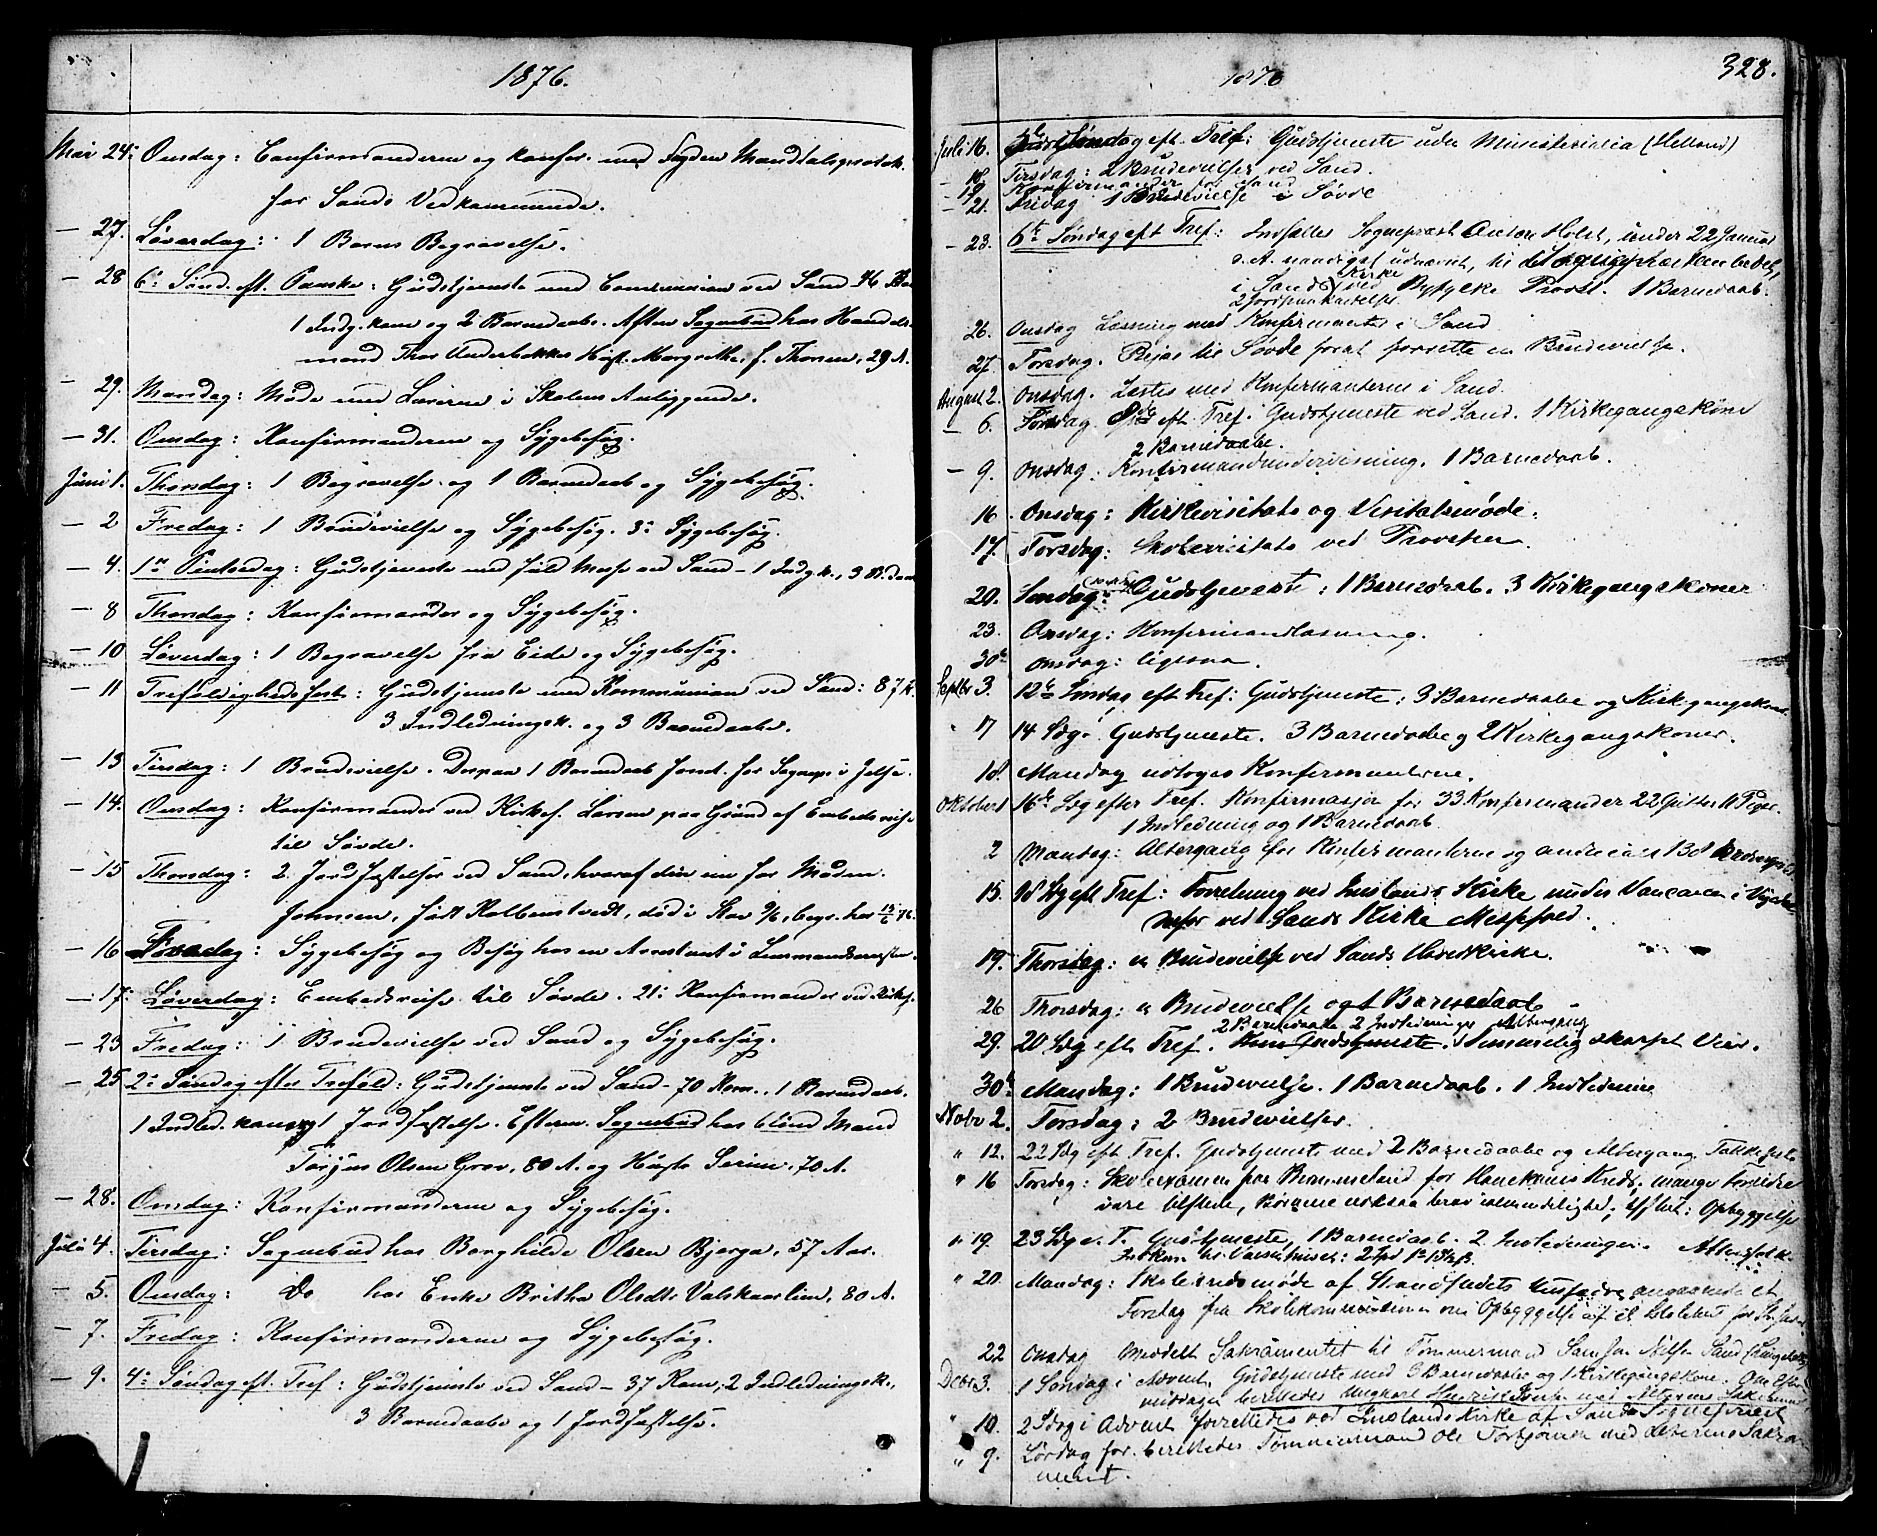 1876.
Mai 24: Onsdag: Confirmanderne og konfer. med Fogden Mandtalsprotok.
for Sands Vedkommende.
— 27. Løverdag: 1 Barns Begravelse.
— 28 6: Sønd. eft. Paaske: Gudstjeneste med Communion ved Sand 46
1 Indg. kone og 2 Barnedaabe. Aften Sognebud hos Handels-
mand Thor Underbakkes Hust. Margrethe, f. Thorsen, 29 A.
— 29. Mandag: Møde med Lærerne i Skolens Anliggende.
— 31. Onsdag: Konfirmanderne og Sygebesøg.
Juni 1. Thorsdag: 1 Begravelse og 1 Barnedaab og Sygebesøg.
— 2 Fredag: 1 Brudevielse og Sygebesøg. 3: Sygebesøg.
— 4. 1ste Pintsedag: Gudstjeneste med fuld Messe ved Sand – 1 Indgk., 3 B.daab
— 8 Thorsdag: Konfirmander og Sygebesøg.
— 10 Løverdag: 1 Begravelse fra Eide og Sygebesøg.
— 11 Trefoldighedsfest: Gudstjeneste med Kommunion ved Sand: 87 K.
3 Indledningsk. og 3 Barnedaabe.
— 13 Tirsdag: 1 Brudevielse. Derpaa 1 Barnedaab forret. for Sognepr. i Jelse.
— 14. Onsdag: Konfirmander ved Kirkes. Larsen paa Grund af Embedsreise
til Søvde.
— 15 Thorsdag: 2 Jordfæstelser ved Sand, hvoraf den ene for Madm.
Jonsen, født Kolbenstvedt, død i Stav 9/6, begr. her 15/6 76.
— 16 Fredag: Sygebesøg og Besøg hos en Arrestant i Lensmandsarresten.
— 17. Løverdag: Embedsreise til Søvde. 21: Konfirmander ved Kirkes.
— 23 Fredag: 1 Brudevielse ved Sand og Sygebesøg.
— 25 2: Søndag efter Trefold: Gudstjeneste ved Sand – 70 Kom., 1 Barnedaab.
1 Indled. kone og 1 Jordfæstelse. Efterm. Sognebud hos blind Mand
Torjus Olsen Grov, 80 A. og Hustr. Serine, 70 A.
— 28. Onsdag: Konfirmanderne og Sygebesøg.
Juli 4. Tirsdag: Sognebud hos Borghilde Olsen Bjerga, 57 Aar.
— 5. Onsdag: Do hos Enke Britha Olsdtr Valskaarlien, 80 A.
— 7. Fredag: Konfirmanderne og Sygebesøg.
— 9. 4: Søndag eft. Tref: Gudstjeneste ved Sand – 37 Kom, 2 Indledningsk.,
3 Barnedaabe og 1 Jordfæstelse.
1876
328.
Juli 16. 5te Søndag eft. Tref: Gudstjeneste uden Ministerialia (Helland)
— 18. Tirsdag: 2 Brudevielser ved Sand.
— 19 Konfirmander for Sand
— 21. Fredag 1 Brudevielse i Søvde
— 23. 6te Søndag eft Tref: Indsattes Sognepræst Anton Holst, under 22 Januar
d. A. naadigst udnævnt, til det Sognepræstembede,
i Sands Kirke ved Ryfylke Provst. 1 Barnedaab.
2 Jordpaakastelser.
26. Onsdag Læsning med Konfirmanter i Sand
27. Torsdag. Rejse til Søvde forat forrette en Brudevielse.
August 2. Onsdag. Læstes med Konfirmanterne i Sand.
— 6. Søndag 8de eft Tref Gudstjeneste ved Sand. 1 Kirkegangskone
2 Barnedaabe.
— 9. Onsdag: Konfirmandundervisning. 1 Barnedaab.
16 Onsdag: Kirkevisitats og Visitatsmøde.
17. Torsdag: Skolevisitats ved Provsten.
20. Søndag: Gudstjeneste: 1 Barnedaab. 3 Kirkegangskoner
23. Onsdag: Konfirmandlæsning.
30te Onsdag: ligesaa.
Septbr 3. 12te Søndag eft Tref: Gudstjeneste: 3 Barnedaabe og Kirkegangskone.
" 17 14 Sdg. Gudstjeneste. 3 Barnedaabe og 2 Kirkegangskoner.
18. Mandag udtoges Konfirmanterne.
Oktober 1 16de Sdg efter Tref. Konfirmasjon for 33 Konfirmander 22 Gutter 11 Piger.
1 Indledning og 1 Barnedaab.
2 Mandag: Altergang for Konfirmanterne og andre
15. 18 Sdg eft Tref: Forretning ved Imslands Kirke under Vancancen i
for ved Sands Kirke Messefald.
19. Thorsdag: en Brudevielse ved Sands Hovedkirke.
26 Thorsdag: en Brudevielse og 1 Barnedaab
2 Barnedaabe 2 Indledninger Altergang
29. 20 Sdg eft Tref. Gudstjeneste. Ummindelig skarpt Veir.
30te Mandag: 1 Brudevielse. 1 Barnedaab. 1 Indledning
Novbr 2. Torsdag: 2 Brudevielser.
" 12. 22 Sdg eft Tref. Gudstjeneste med 2 Barnedaabe og Altergang. Takkefest.
" 16 Torsdag: Skoleexamen paa Brommeland for Kreds; mange Forældre
vare tilstede, Børnene ; tilslut: Opbyggelse
" 19. 23 Sdg e. T. Gudstjeneste, 1 Barnedaab. 2 Indledninger. Altersfolk.
" 20. Mandag: Skolekredsmøde af Strandstedets Husfædre angaaende et
Forslag fra Skolekommissionen om Opbyggelse af et Skolehus for
22 Onsdag Meddelt Sakramentet til Tømmermand Nilsen Sand
Decbr 3. 1 Søndag i Advent Gudstjeneste med 3 Barnedaabe og 1 Kirkegangskone. Om Efter-
middagen berettedes Ungkarl Henrik med Alterens Sakrament
" 10. 2 Sdg i Advent forrettedes ved Imslands Kirke af Sands Sogneprest
" 9. Lørdag før berettedes Tømmermand Ole Torbjørnsen med Alterens Sakra-
ment.